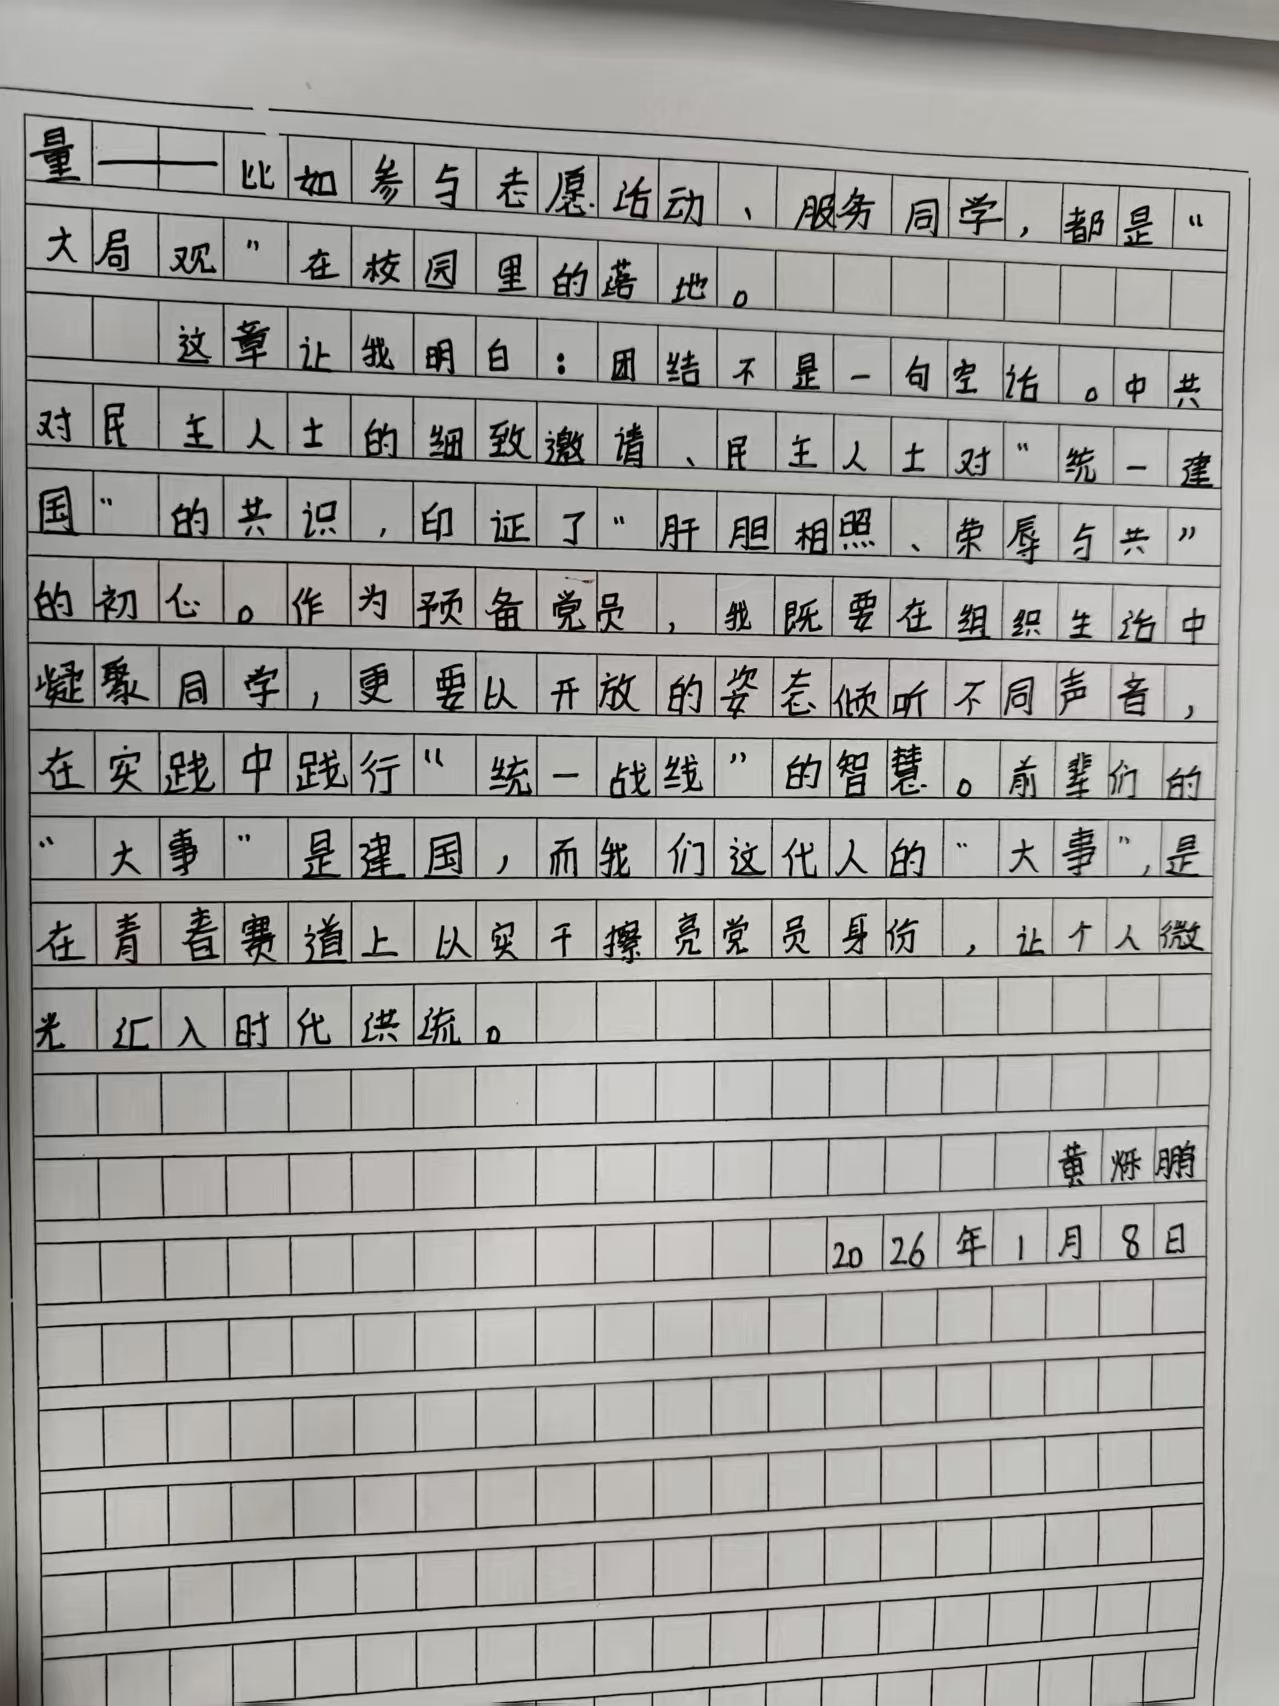 量——比如参与志愿活动、服务同学，都是“
大局观”在校园里的落地。
这章让我明白：团结不是一句空话。中共
对民主人士的细致邀请、民主人士对“统一建
国”的共识，印证了“肝胆相照、荣辱与共”
的初心。作为预备党员，我既要在组织生活中
凝聚同学，更要以开放的姿态倾听不同声音，
在实践中践行“统一战线”的智慧。前辈们的
“大事”是建国，而我们这代人的“大事”，是
在青春赛道上以实干擦亮党员身份，让个人微
光汇入时代洪流。
黄烁鹏
2026年1月8日